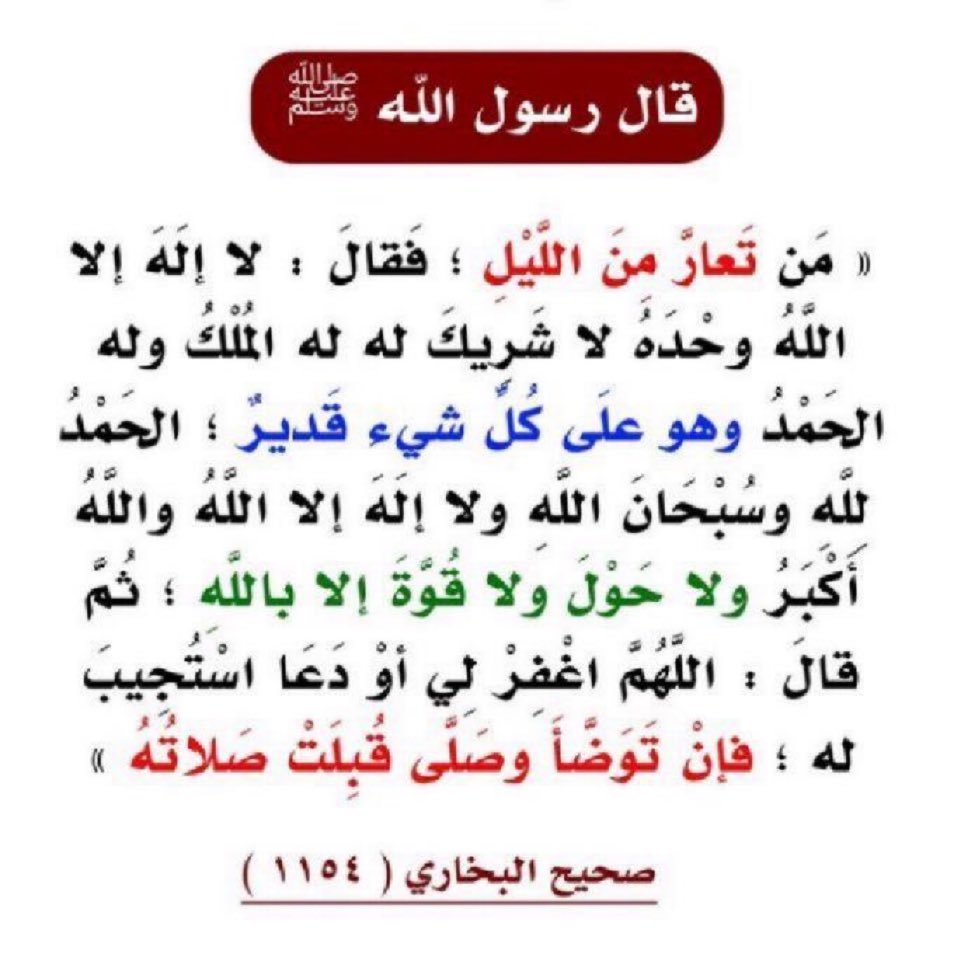 قال رسول الله ﷺ
« مَن تَعارَّ مِنَ اللَّيْلِ ؛ فَقالَ : لا إلَهَ إلا
اللَّهُ وحْدَهُ لا شَرِيكَ له له المُلْكُ وله
الحَمْدُ وهو علَى كُلِّ شيء قَديرٌ ؛ الحَمْدُ
للَّه وسُبْحَانَ اللَّهِ ولا إلَهَ إلا اللَّهُ واللَّهُ
أَكْبَرُ ولا حَوْلَ ولا قُوَّةَ إلا باللَّهِ ؛ ثُمَّ
قالَ : اللَّهُمَّ اغْفِرْ لِي أوْ دَعَا اسْتُجِيبَ
له ؛ فإنْ تَوَضَّأَ وصَلَّى قُبِلَتْ صَلاتُهُ »
صحيح البخاري ( ١١٥٤ )